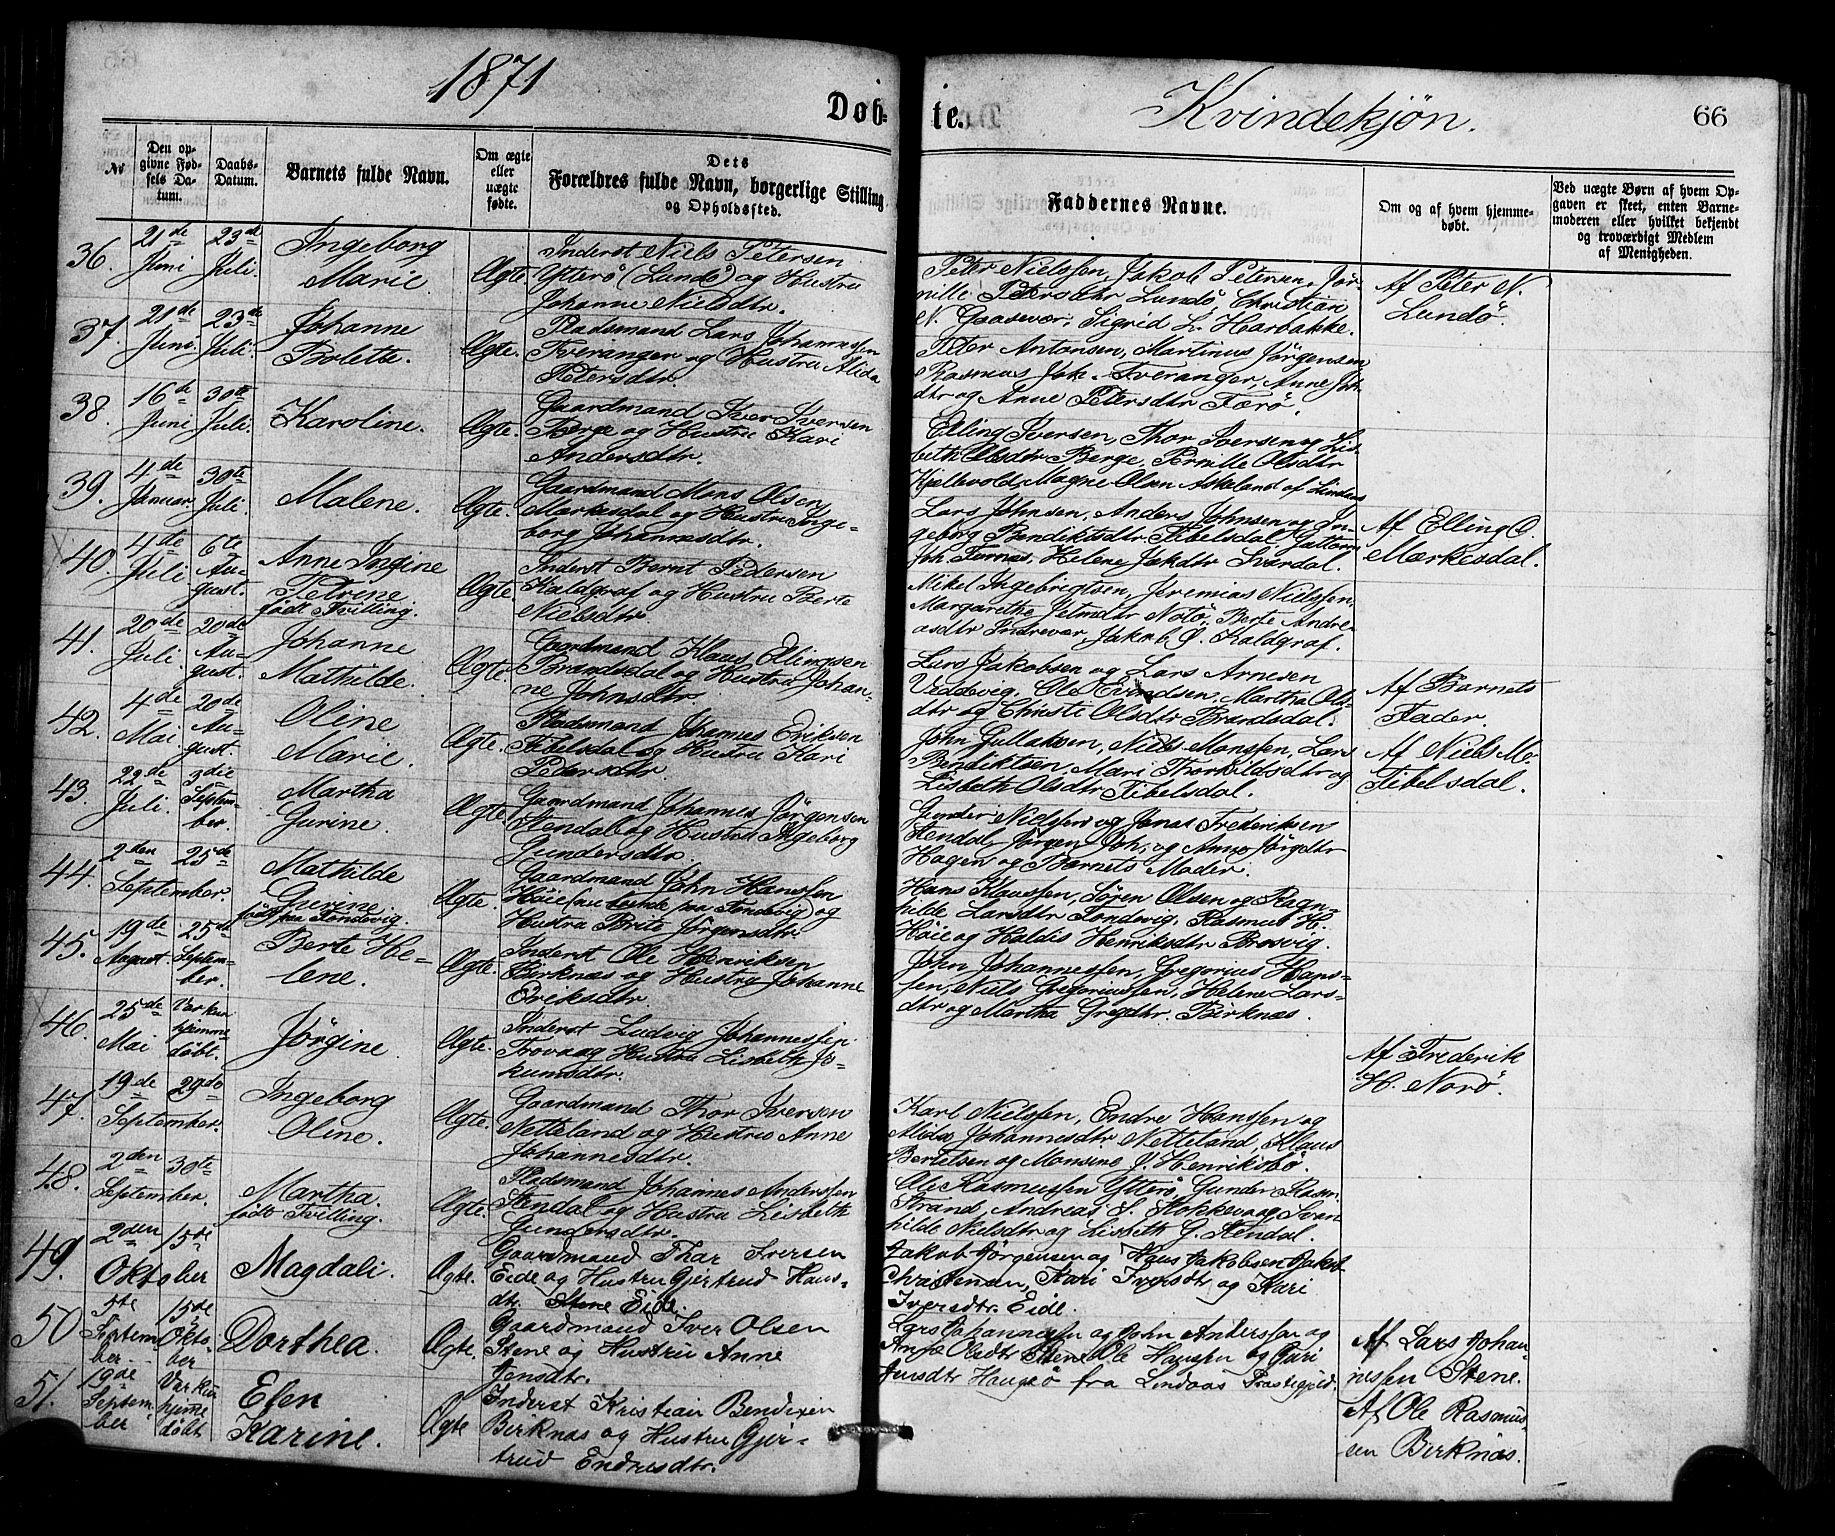 1871
Døb-
te.
Kvindekjøn.
66
№
Den op-
givne Fød-
sels Da-
tum.
Daabs-
Datum.
Barnets fulde Navn.
Om ægte
eller
uægte
fødte.
Dets
Forældres fulde Navn, borgerlige Stilling
og Opholdssted.
Faddernes Navne.
Om og af hvem hjemme-
døbt.
Ved uægte Børn af hvem Op-
gaven er skeet, enten Barne-
moderen eller hvilket bekjendt
og troværdigt Medlem
af Menigheden.
36.
21de
Juni
23de
Juli.
Ingeborg
Marie.
Ægte.
Inderst Niels Petersen
Ytterø (Lundø) og Hustru
Johanne Nielsdtr.
Peter Nielssen, Jakob Petersen,
nille Petersdtr Lundø, Christian
N. Gaasevær, Sigrid L. Harbakke.
Af Peter N.
Lundø.
37.
21de
Juni.
23de
Juli.
Johanne
Bolette.
Ægte.
Pladsmand Lars Johannessen
Tveranger og Hustru Alida
Petersdtr.
Peter Antonsen, Martinus Jørgensen
Rasmus Joh. Tveranger, Anne Joh
dtr og Anne Petersdtr Færø.
38.
16de
Juni
30te
Juli.
Karoline.
Ægte.
Gaardmand Iver Iversen
Berge og Hustru Kari
Andersdtr.
Elling Iversen, Thor Iversen og Lis-
beth Olsdtr Berge, Pernille Olsdtr
Kjellevold, Magne Olsen Askeland af Lindaas
39.
4de
Januar.
30te
Juli.
Malene.
Ægte.
Gaardmand Mons Olsen
Mærkesdal og Hustru Inge-
borg Johannesdtr.
Lars Johnsen, Anders Johnsen og In-
geborg Bendiktsdtr Tibelsdal, Guttorm
Joh. Turnæs, Helene Jakdtr Sverdal.
Af Elling O.
Mærkesdal.
40.
4de
Juli
6te
Au-
gust.
Anne Ingine
Petrine.
født Tvilling.
Ægte.
Inderst Bernt Pedersen
Kaldgraf og Hustru Berte
Nielsdtr.
Mikel Ingebrigtsen, Jeremias Nielssen,
Margarethe Jetmdtr Notø, Berte Andre-
asdtr Indrevær, Jakob O. Kaldgraf.
41.
20de
Juli
20de
Au-
gust.
Johanne
Mathilde.
Ægte.
Gaardmand Klaus Ellingsen
Brandsdal og Hustru Johan-
ne Johnsdtr.
Lars Jakobsen og Lars Arnesen
Veddevig, Ole Evindsen, Martha Ols-
dtr og Christi Olsdtr Brandsdal.
Af Barnets
Fader.
42.
4de
Mai.
20de
Au-
gust.
Oline
Marie.
Ægte.
Pladsmand Johannes Eriksen
Tibelsdal og Hustru Kari
Pedersdtr.
John Gullaksen, Niels Monssen, Lars
Bendiktsen, Mari Thorkildsdtr og
Lisbeth Olsdtr Tibelsdal.
Af Niels Mo.
Tibelsdal.
43.
22de
Juli.
3die
Septem-
ber.
Martha
Gurine.
Ægte.
Gaardmand Johannes Jørgensen
Stendal og Hustru Ingeborg
Gundersdtr.
Gunder Nielssen og Jonas Frederiksen
Stendal, Jørgen Joh. og Anne Jørgdtr
Hagen og Barnets Moder.
44.
2den
September.
25de
Mathilde
Gurine.
født paa Tondevig.
Ægte.
Gaardmand John Hanssen
Høie (nu boende paa Tondevig) og
Hustru Brite Jørgensdtr.
Hans Klaussen, Søren Olsen og Ragn-
hilde Larsdtr Tondevig, Rasmus H.
Høie og Haldis Henriksdtr Brosvig.
45.
19de
August.
25de
Septem-
ber.
Berte He-
lene.
Ægte.
Inderst Ole Henriksen
Birknæs og Hustru Johanne
Eriksdtr.
John Johannessen, Gregorius Hans-
sen, Niels Gregoriussen, Helene Lars-
dtr og Martha Gregdtr. Birknæs.
46.
25de
Mai
Var kun
hjemme
døbt.
Jørgine.
Ægte.
Inderst Ludvig Johannessen
Trovaag Hustru Lisbeth Jo-
kumsdtr.
Af Frederik
H. Norø.
47.
19de
September.
29de
Ingeborg
Oline.
Ægte.
Gaardmand Thor Iversen
Netteland og Hustru Anne
Johannesdtr.
Karl Nielssen, Endre Hanssen og
Alida Johannesdtr Netteland, Klaus
Bertelsen og Monsine J. Henriksbø.
48.
2den
September.
30te
Martha.
født Tvilling.
Ægte.
Pladsmand Johannes Anderssen
Stendal og Hustru Lisbeth
Gundersdtr.
Ole Rasmussen Ytterø, Gunder Rasm.
Strand, Andreas S. Stokkevaag, Svan-
hilde Nielsdtr og Lisbeth G. Stendal.
49.
2den
Oktober
15de
Magdali.
Ægte.
Gaardmand Thar Iversen
Eide og Hustru Gjertrud Hans-
dtr. Stene Eide.
Jakob Jørgensen og Hans Jakobsen, Jakob
Christensen, Kari Iversdtr og Kari
Iversdtr. Eide.
50
5te
Septem-
ber.
15de
Okto-
ber
Dorthea.
Ægte.
Gaardmand Iver Olsen
Stene og Hustru Anne
Jensdtr.
Lars Johannessen og John Anderssen og
Anne Olsdtr Stene, Ole Hanssen og Guri
Jensdtr Haugsø fra Lindaas Præstegjeld.
Af Lars Johan-
nessen Stene.
51.
19de
Septem-
ber
Var kun
hjeme
døbt
Elen
Karine.
Ægte
Inderst Kristian Bendixen
Birknæs og Hustru Gjer-
trud Endresdtr.
Af Ole Rasmus-
sen Birknæs.